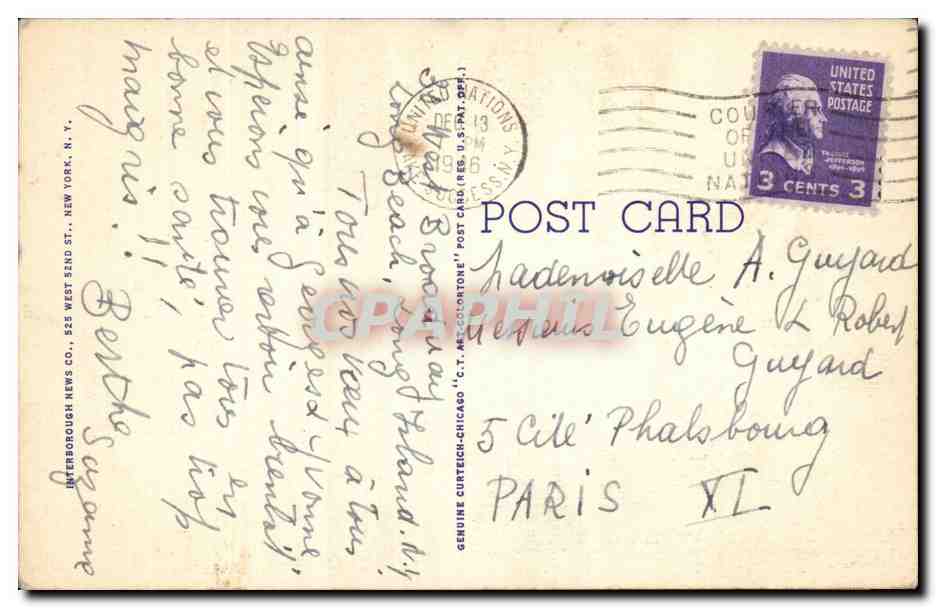 34 West Broadway
Long Beach, Long Island. N.Y
Tous nos vœux à tous
ainsi qu'à Georges et Yvonne.
Espérons vous revoir bientôt
et vous trouver tous en
bonne santé, pas trop
maigris!!
Berthe
Suzanne
UNITED NATIONS
DEC 13
PM
1946
LAKE SUCCESS N.Y.
UNITED
STATES
POSTAGE
THOMAS
JEFFERSON
1801-1809
3 CENTS 3
OF THE
POST CARD
Mademoiselle A. Guyard
Messieurs Eugène & Robert
Guyard
5 Cité Phalsbourg
PARIS XI
CPAPHIL
GENUINE CURTEICH-CHICAGO "C.T. ART-COLORTONE" POST CARD (REG. U.S. PAT. OFF.)
INTERBOROUGH NEWS CO., 525 WEST 52ND ST., NEW YORK, N. Y.